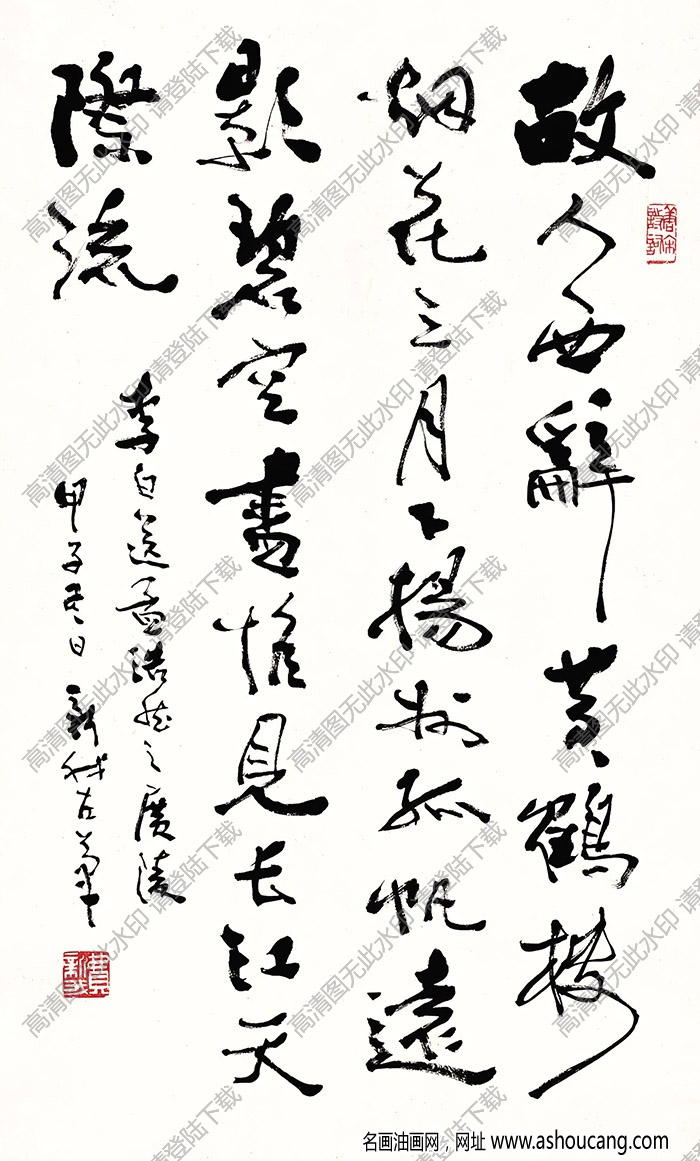 故人西辭黄鶴楼
烟花三月下揚州孤帆遠
影碧空盡惟見长江天
際流
李白送孟浩然之廣陵
甲子冬日新我左笔
費新我
高清图无此水印 请登陆下载
名画油画网，网址 www.ashoucang.com